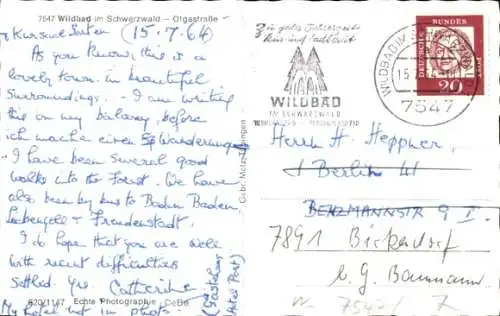 7547 Wildbad im Schwarzwald - Olgastraße -
(15.7.64)
As you know, this is a
lovely town in beautiful
surroundings. - I am writing
this on my balcony before
ich mache einen Spaziergang
- I have been several good
walks into the Forest. We have
also been by bus to Baden Baden,
Liebenzell + Freudenstadt.
I do hope that you are well
with recent difficulties
settled. Yrs. Catherine
My hotel not in photo.
820/1147 Echte Photographie CeBe
Gebr. Metz, Tübingen
Zu jeder Jahreszeit
WILDBAD
IM SCHWARZWALD
WILDBAD IM SCHWARZWALD
15.7.
7547
DEUTSCHE BUNDESPOST
20
Herrn H. Heppner,
1 Berlin 41
BENZMANNSTR 9 II
7891 Birkendorf
b. G. Baumann